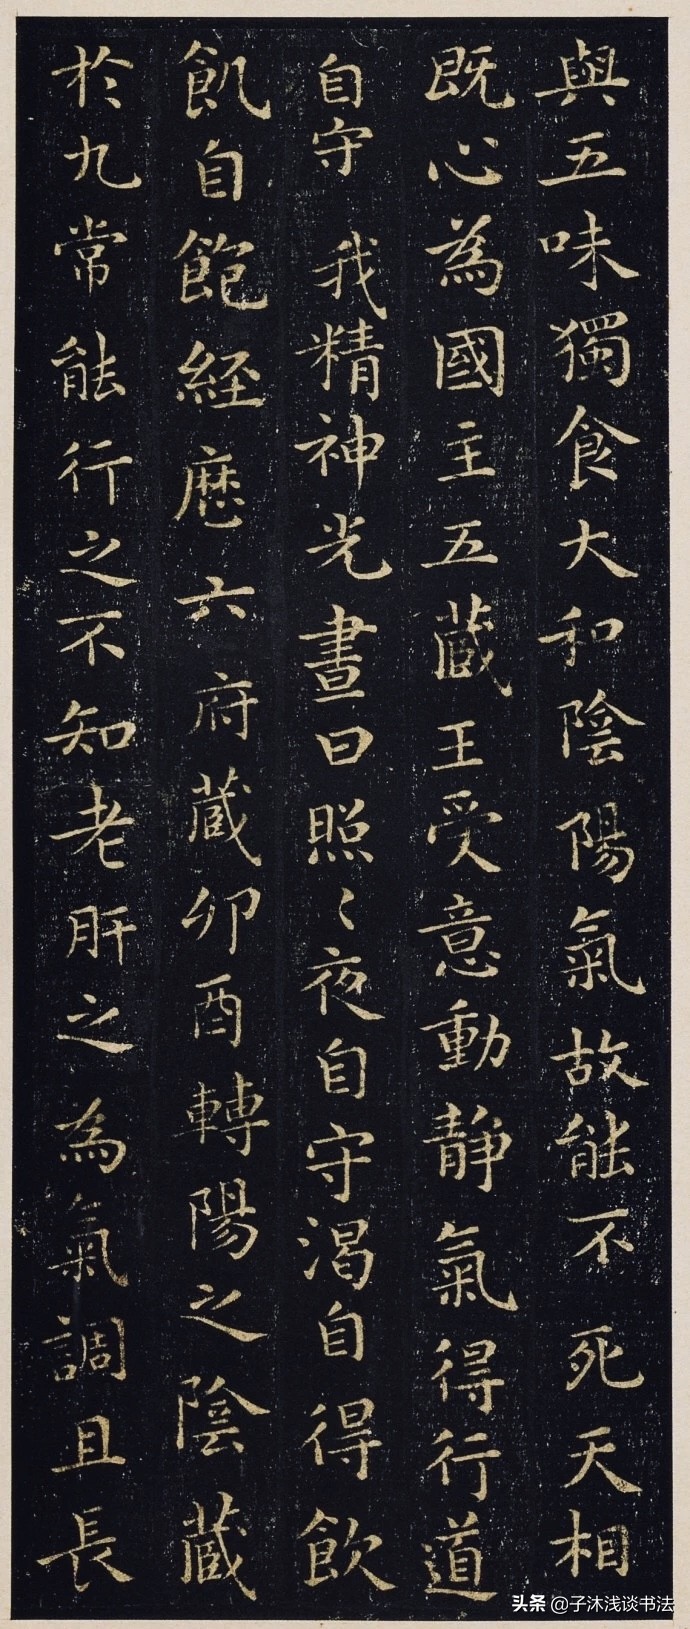 與五味獨食大和陰陽氣故能不死天相
既心為國主五藏王受意動靜氣得行道
自守我精神光晝日照〻夜自守渴自得飲
飢自飽經歷六府藏卯酉轉陽之陰藏
於九常能行之不知老肝之為氣調且長
头条 @子沐浅谈书法